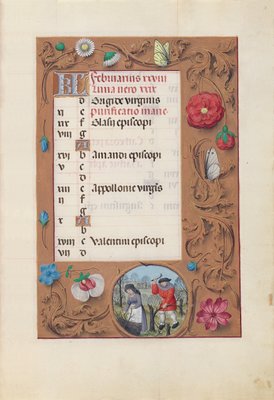 KL Februarius xxviii
Luna vero xxix
d Brigide virginis
xi e Purificatio marie
xix f Blasii episcopi
viii g
A
xvi b Amandi episcopi
v c
d
xiii e Appollonie virgis
ii f
g
x A
b
xviii c Valentini episcopi
vii d